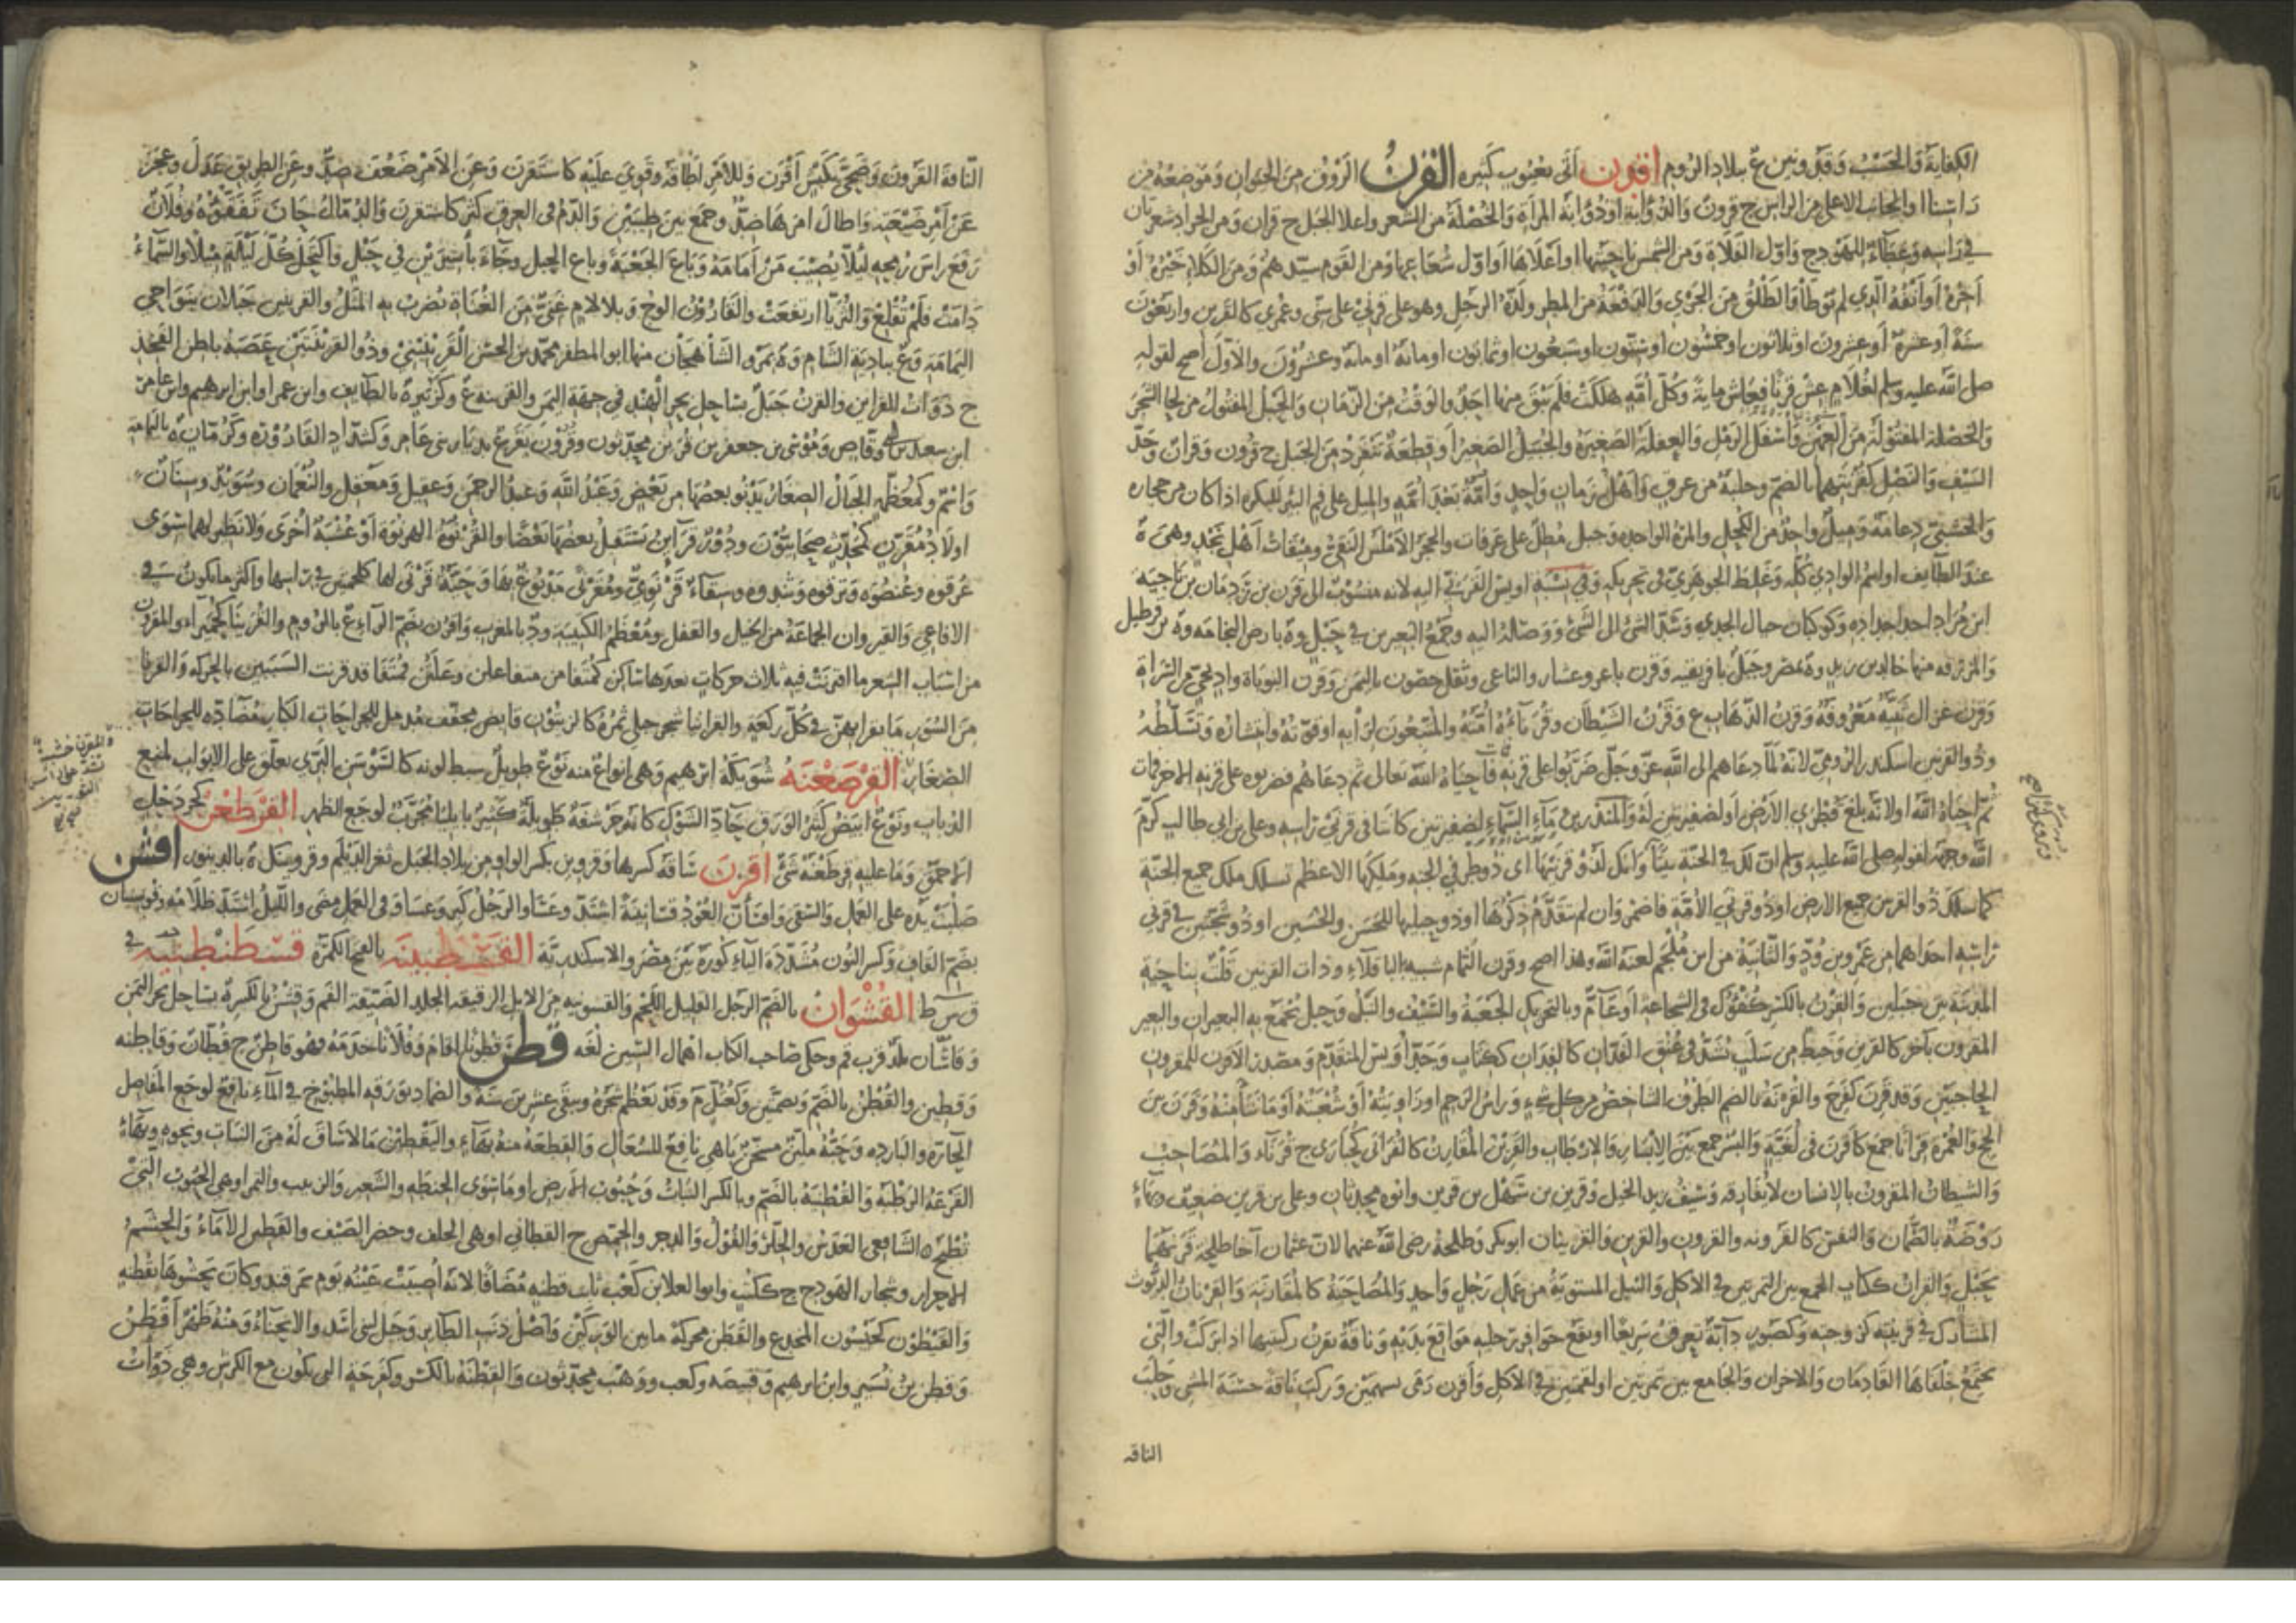 الكفاية والحسب وقذونين ع ببلاد الروم اقرن اتى بعيوب كثيره القرن الروق من الحيوان وموضعه من
راسنا او الجانب الاعلى من الراس ج قرون والذؤابة او ذؤابة المراة والخصلة من الشعر واعلا الجبل ج قران ومن الجراد شعرتان
في راسه وغطاء للهودج واول الفلاة ومن الشمس ناحيتها او اعلاها او اول شعاعها ومن القوم سيدهم ومن الكلا خيره او
اخره او انفه الذي لم يوطأ والطلق من الجري والدفعة من المطر ولدة الرجل وهو على قرني على سني وعمري كالقرين واربعون
سنة او عشرة او عشرون او ثلاثون او خمسون او ستون او سبعون او ثمانون او مائة او مائة وعشرون والاول اصح لقوله
صلى الله عليه وسلم لغلام عش قرنا فعاش مايه وكل امة هلكت فلم يبق منها احد والوقت من الزمان والحبل المفتول من لحا الشجر
والخصلة المفتولة من العهن واسفل الرمل والعفلة الصغيره والجبل الصغير او قطعة تنفرد من الجبل ج قرون وقران وحد
السيف والنصل كقرنتهما بالضم وحلبة من عرق واهل زمان واحد وامة بعد امه والميل على فم البئر للبكره اذا كان من حجاره
والخشبي دعامة وميل واحد من الكحل والمرة الواحده وجبل مطل على عرفات والحجر الاملس النقي وميقات اهل نجد وهي ة
عند الطايف او اسم الوادي كله وغلط الجوهري في تحريكه وفي نسبة اويس القرني اليه لانه منسوب الى قرن بن ردمان بن ناجية
ابن مراد احد اجداده وكوكبان حيال الجدي وشد الشئ الى الشئ ووصله اليه وجمع البعيرين في حبل وة بارض اليمامه وة بين قطربل
والمزرفه منها خالد بن زيد وة بمصر وجبل بافريقيه وقرن باعر وعشار والناعي وبقل حصون باليمن وقرن البوباة واد يجي من السراة
وقرن غزال ثنية معروفة وقرن الذهاب ع وقرن الشيطان وقرناءه امته والمتبعون لرأيه او قوته وانتشاره وتسلطه
وذو القرنين اسكندر الرومي لانه لما دعاهم الى الله عز وجل ضربوا على قرنه فاحياه الله تعالى ثم دعاهم فضربوه على قرنه الاخر فمات
ثم احياه الله او لانه بلغ قطري الارض او لضفيرتين له والمنذر بن ماء السماء لضفيرتين كانتا في قرني راسه وعلي بن ابي طالب كرم
الله وجهه لقوله صلى الله عليه وسلم ان لك في الجنة بيتا وانك لذو قرنيها اى ذو طرفي الجنه وملكها الاعظم تسلك ملك جميع الجنة
كما سلك ذو القرنين جميع الارض او ذو قرني الامة فاضمر وان لم يتقدم ذكرها او ذو جبليها للحسن والحسين او ذو شجتين في قرني
راسه احداهما من عمرو بن ود والثانية من ابن ملجم لعنه الله وهذا اصح وقرن الثمام شبيه بالباقلاء وذات القرنين قلت بناحية
المدينة بين جبلين والقرن بالكسر كفؤك في الشجاعة او عام وبالتحريك الجعبة والسيف والنبل وحبل يجمع به البعيران والبعير
المقرون بآخر كالقرين وخيط من سلب يشد في عنق الفدان كالقران ككتاب وجد اويس المتقدم ومصدر الاقرن للمقرون
الحاجبين وقد قرن كفرح والقرنة بالضم الطرف الشاخص من كل شيء وراس الرحم او زاويته او شعبته او ما نتا منه وقرن بين
الحج والعمرة قرانا جمع كاقرن في لغية والبسر جمع بين الابسار والارطاب والقرين المقارن كالقرانى كحبارى ج قرناء والمصاحب
والشيطان المقرون بالانسان لا يفارقه وسيف زيد الخيل وقرين بن سهل بن قرين وابوه محدثان وعلي بن قرين ضعيف وبهاء
روضة بالصمان والنفس كالقرونه والقرون والقرين والقرينان ابوبكر وطلحة رضي الله عنهما لان عثمان اخا طلحة قرنهما
بحبل والقران ككتاب الجمع بين التمرتين في الاكل والنبل المستوية من عمل رجل واحد والمصاحبة كالمقارنة والقرنان الديوث
المشارك في قرينته لزوجته وكصبور دابة تعرق سريعا او تقع حوافر رجليه مواقع يديه وناقة تقرن ركبتيها اذا بركت والتى
يجتمع خلفاها القادمان والاخران والجامع بين تمرتين او لقمتين في الاكل واقرن رمى بسهمين وركب ناقة حسنة المشي وحلب
الناقه
الناقة القرون وضحى بكبش اقرن وللامر اطاقه وقوى عليه كاستقرن وعن الامر ضعف ضد وعن الطريق عدل وعجز
عن امر ضيعته واطال امرها ضد وجمع بين رطبتين والدم في العرق كثر كاستقرن والدمل حان تفقؤه وفلان
رفع راس رمحه ليلا يصيب من امامه وباع الجعبة وباع الحبل وجاء باسيرين في حبل واكتحل كل ليلة ميلا والسماء
دامت فلم تقلع والثريا ارتفعت والقارون الوج وبلا لام عتي من العتاة يضرب به المثل والقرينين جبلان بنواحي
اليمامة وع ببادية الشام وة بمرو الشاهجان منها ابو المظفر محمد بن الحسن القرينيني وذو القرينتين عصبة باطن الفخذ
ج ذوات القراين والقرن جبل بساحل بحر الهند في جهة اليمن والقرينه ع وكزبيرة بالطايف وابن عمر او ابن ابرهيم وابن عامر
ابن سعد بن ابي وقاص وموسى بن جعفر بن قرين محدثون وقرون بقرع بديار بني عامر وكشداد القارورة وكرمان ة باليمامة
وانتم وكمعظم الجبال الصغار يدنو بعضها من بعض وعبد الله وعبد الرحمن وعقيل ومعقل والنعمان وسويد وسنان
اولاد مقرن كمحدث صحابيون ودور قرآين يستقبل بعضها بعضا والقرنوة الهرنوة او عشبة اخرى ولا نظير لهما سوى
عرقوه وعنصوه وترقوه وثندوه وسقاء قرنوي ومقرنى مدبوغ بها وحية قرنى لها كلحمتين في راسها واكثر ما يكون في
الافاعي والقيروان الجماعة من الخيل والقفل ومعظم الكتيبة ود بالمغرب واقرن بضم الراء ع بالروم والقريناء كحميراء والمقرون
من اسباب الشعر ما اقترنت فيه ثلاث حركات بعدها ساكن كمتفا من متفاعلن وعلتن فمتفا قد قرنت السببين بالحركه والقرنا
من السور ما يقرا بهن في كل ركعة والقرانيا شجر جبلي ثمره كالزيتون قابض مجفف مدمل للجراحات الكبار مضاده للجراحات
الصغار القرصعنه شويكة ابرهيم وهي انواع منه نوع طويل سبط لونه كالسوسن البري يعلق على الابواب لمنع
الذباب ونوع ابيض كثير الورق حاد الشوك كانه حرشفة طويلة كثير بايليا مجرب لوجع الظهر القرطعن كجردحل
الاحمق وما عليه قرطعنة شئ اقزن ساقه كسرها وقزوين بكسر الواو من بلاد الجبل ثغر الديلم وقزوينك ة بالدينور اقسن
صلبت يده على العمل والسقى واقسأن العود قسانينة اشتد وعسا والرجل كبر وعسا وفى العمل مضى والليل اشتد ظلامه وقوسنيان
بضم القاف وكسر النون مشددة الياء كورة بين مصر والاسكندرية القسطبينة بالضم الكمرة قسطنطينية في
ق س ط القشوان بالضم الرجل القليل اللحم والقسونيه من الابل الرقيقة الجلد الضيقة الفم وقشن بالكسر ة بساحل بحر اليمن
وقاشان بلد قرب قم وحكى صاحب الكاب اهمال الشين لغه قطن قطونا اقام وفلانا خدمه وهو قاطن ج قطان وقاطنه
وقطين والقطن بالضم وبضمتين وكعتل م وقد يعظم شجره ويبقى عشرين سنة والضماد بورقه المطبوخ في الماء نافع لوجع المفاصل
الحارة والبارده وحبه ملين مسخن باهى نافع للسعال والقطعة منه بهاء واليقطين ما لا ساق له من النبات ونحوه وبهاء
القرعة الرطبة والقطنية بالضم وبالكسر النبات وحبوب الارض او ما سوى الحنطه والشعير والزبيب والتمر او هي الحبوب التي
تطبخ الشافعي العدس والخلر والفول والدجر والحمص ج القطاني او هى الخلف وخضر الصيف والقطين الاماء والحشم
الاحرار وشجار الهودج ج ككتب وابو العلا بن كعب ثابت قطنه مضافا لانه اصيبت عينه يوم سمرقند وكان يحشوها بقطنه
والقيطون كحيزبون المخدع والقطن محركة ما بين الوركين واصل ذنب الطاير وجبل لبنى اسد والانحناء ومنه ظهر اقطن
وقطن بن نسير وابن ابرهيم وقبيصه وكعب ووهب محدثون والقطنة بالكسر وكفرحة التي تكون مع الكرش وهي ذوات